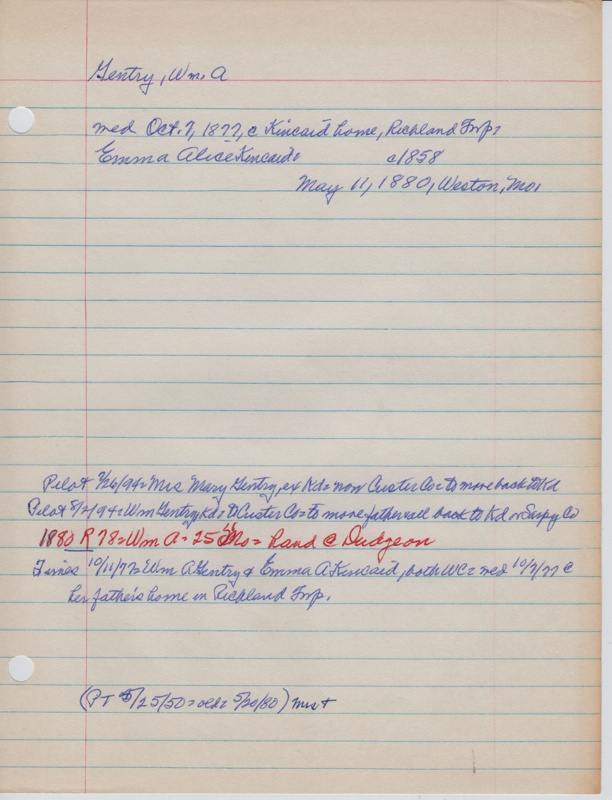 Gentry, Wm. A
med Oct. 7, 1877, c Kincaid home, Richland Twp=
Emma Alice Kincaid= c1858
May 11, 1880, Weston, Mo.
Pilot 7/26/94= Mrs Mary Gentry, ex Kd= now Custer Co= to move back to Kd
Pilot 8/2/94= Wm Gentry Kd= to Custer Co= to move father-in-law back to Kd or Sarpy Co
1880 R 78= Wm A= 25 Mo= hand @ Dudgeon
Times 10/11/77= Wm A Gentry & Emma A Kincaid, both WC= med 10/7/77 @
her father's home in Richland Twp.
(PT 5/25/50= old= 5/20/80) Mrs +